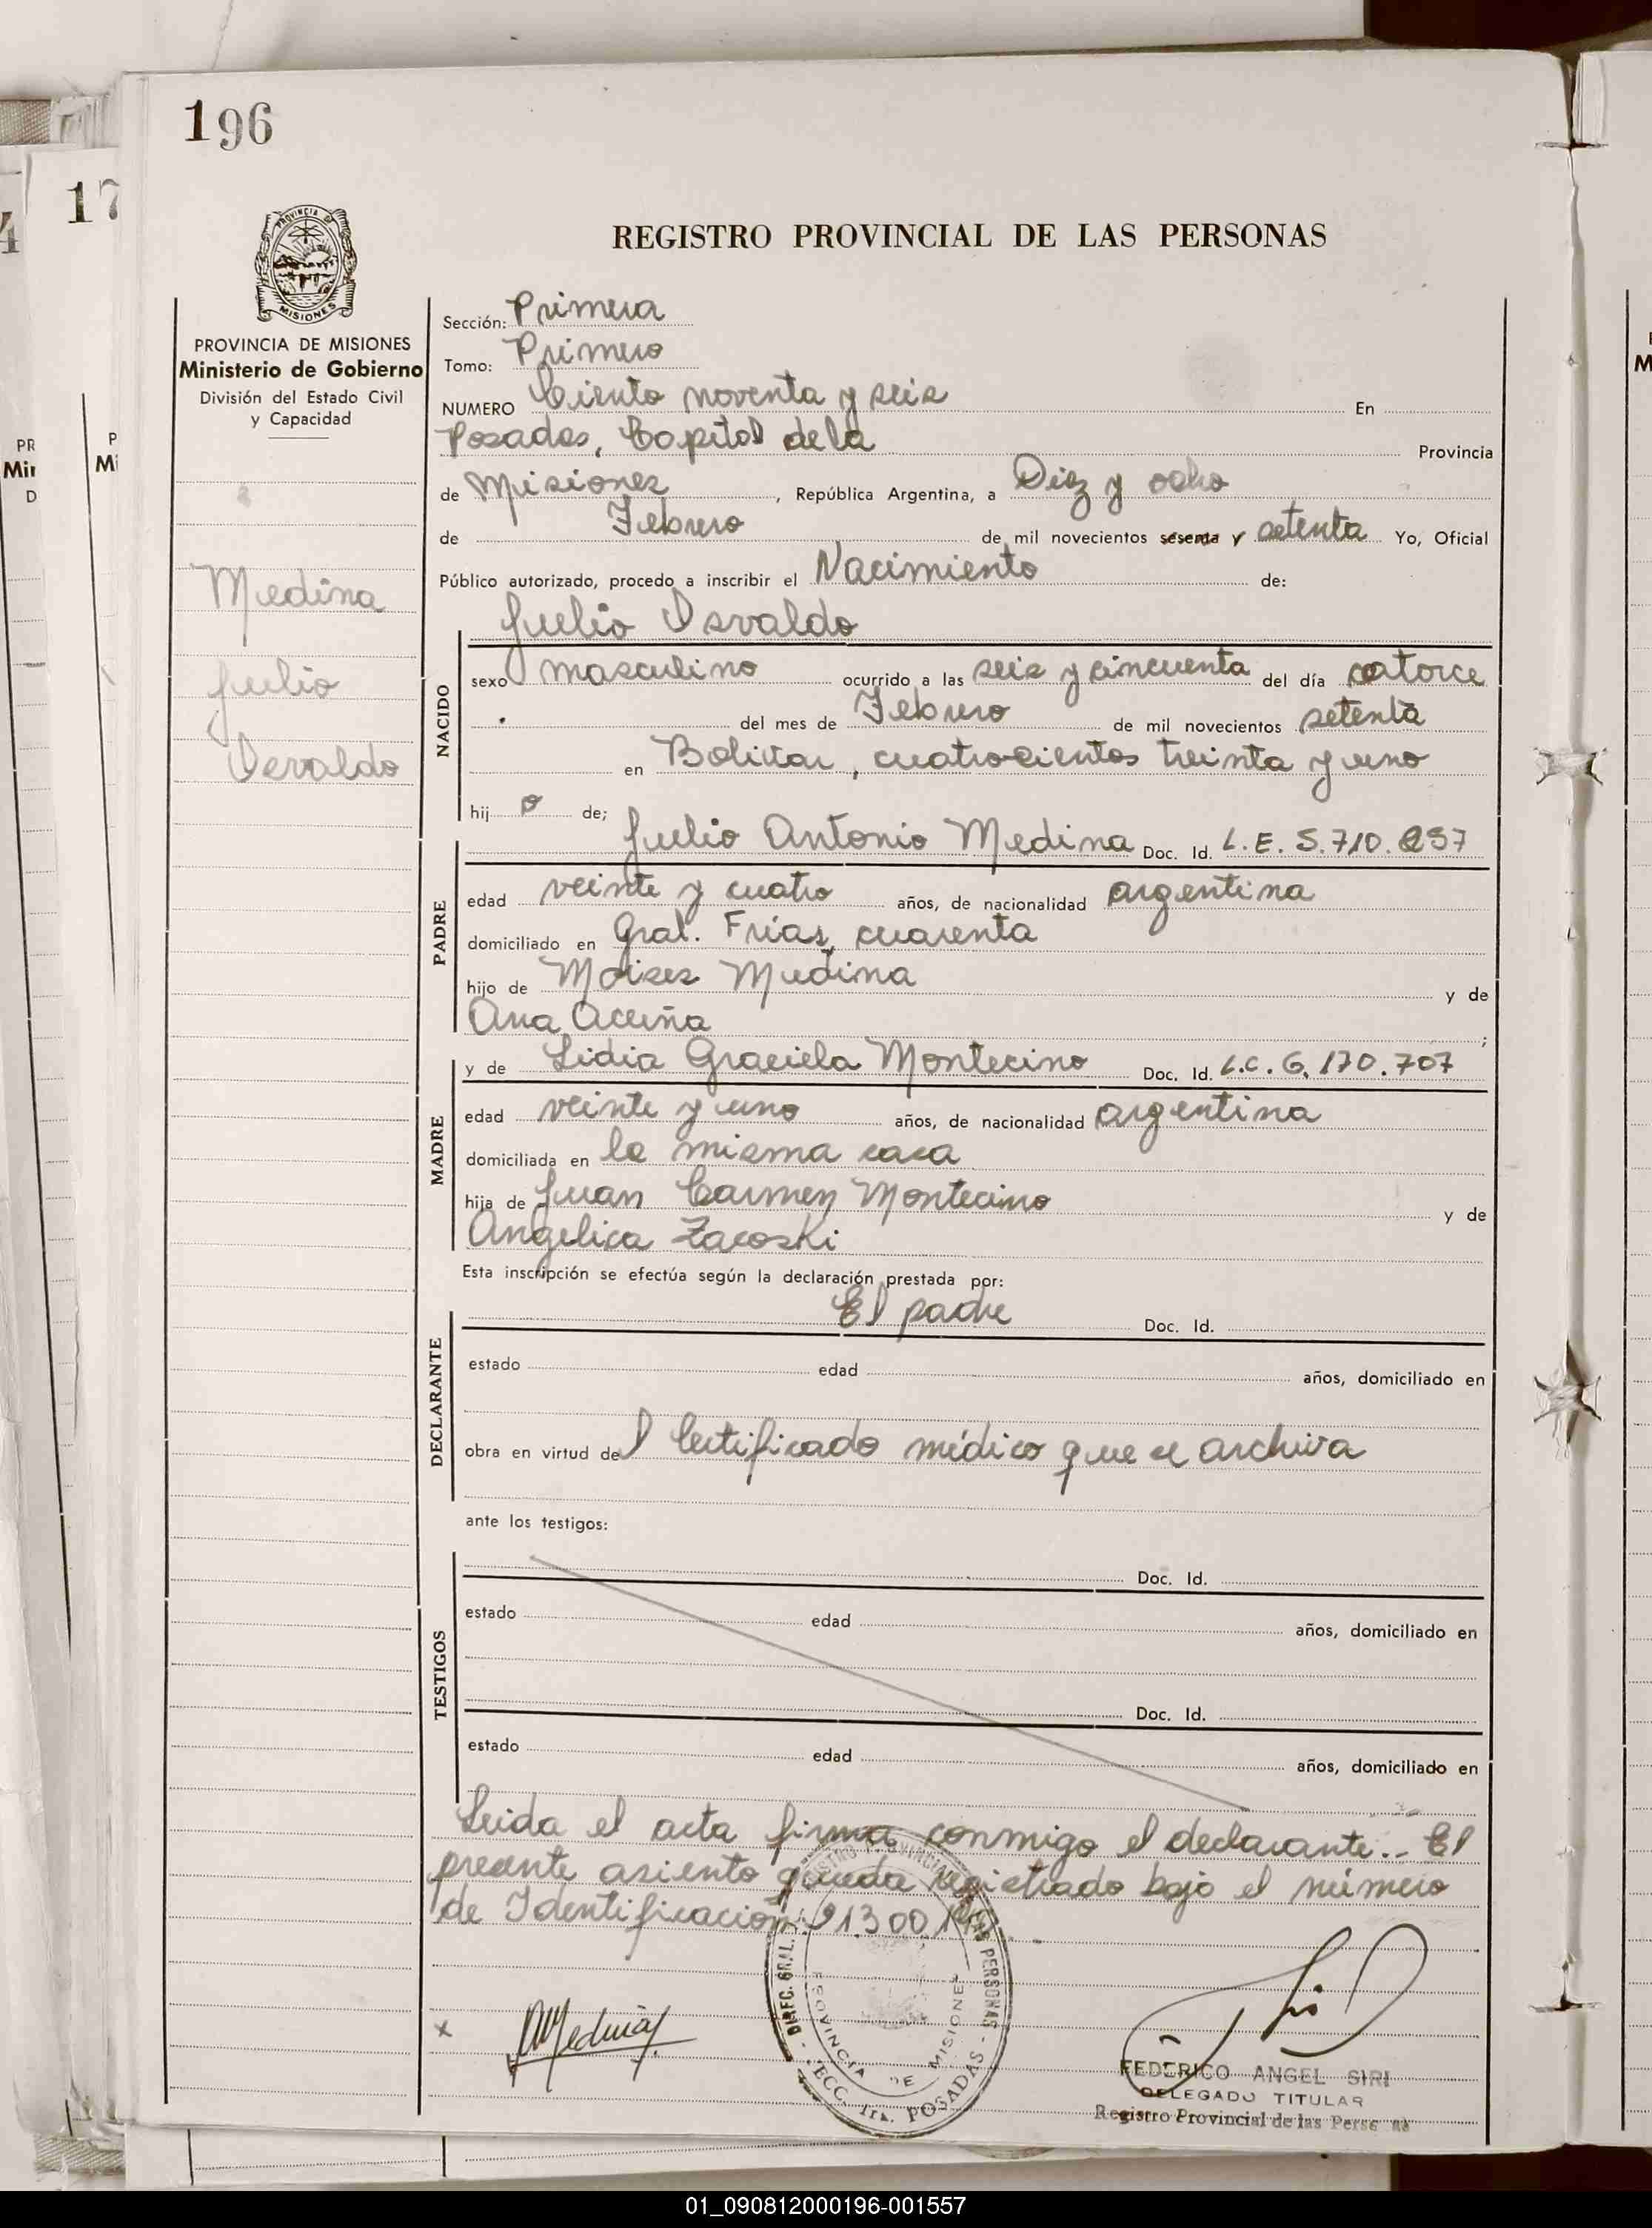 196
17
4
PROVINCIA DE
MISIONES
REGISTRO PROVINCIAL DE LAS PERSONAS
PROVINCIA DE MISIONES
Ministerio de Gobierno
División del Estado Civil
y Capacidad
Medina
Julio
Osvaldo
Sección: Primera
Tomo: Primero
NUMERO Ciento noventa y seis En
Posadas, Capital de la Provincia
de Misiones, República Argentina, a Diez y ocho
de Febrero de mil novecientos sesenta y setenta Yo, Oficial
Público autorizado, procedo a inscribir el Nacimiento de:
Julio Osvaldo
NACIDO
sexo masculino ocurrido a las seis y cincuenta del día catorce
del mes de Febrero de mil novecientos setenta
en Bolivar, cuatrocientos treinta y uno
hij o de;
Julio Antonio Medina Doc. Id. L.E. 5.710.
PADRE
edad veinte y cuatro años, de nacionalidad argentina
domiciliado en Gral. Frías, cuarenta
hijo de Moises Medina y de
Ana Acuña ;
y de Lidia Graciela Montecino Doc. Id. L.C. 6.170.707
MADRE
edad veinte y uno años, de nacionalidad argentina
domiciliada en la misma casa
hija de Juan Carmen Montecino y de
Angelica Zacoski
Esta inscripción se efectúa según la declaración prestada por:
El padre Doc. Id.
DECLARANTE
estado edad años, domiciliado en
obra en virtud del Certificado médico que se archiva
ante los testigos:
TESTIGOS
Doc. Id.
estado edad años, domiciliado en
Doc. Id.
estado edad años, domiciliado en
Leida el acta firma conmigo el declarante.- El
presente asiento queda registrado bajo el número
de Identificación:
x Medina
DIREC. GRAL. REGISTRO PROVINCIAL DE LAS PERSONAS - SECC. 1ra. POSADAS -
PROVINCIA DE MISIONES
FEDERICO ANGEL SIRI
DELEGADO TITULAR
Registro Provincial de las Personas
01_090812000196-001557